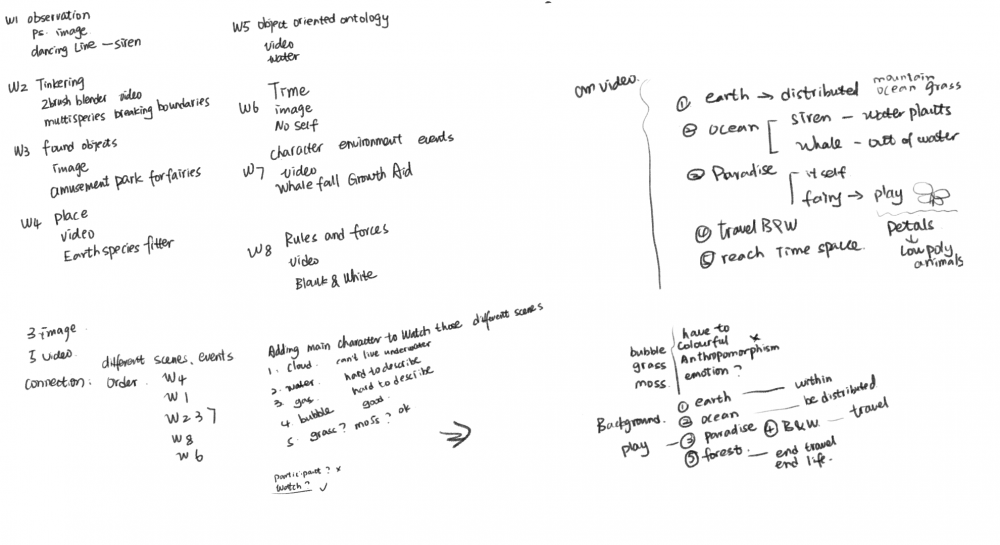 W1 observation
Ps. image
dancing Line - siren
W2 Tinkering
Zbrush blender video
multispecies breaking boundaries
W3 found objects
image
amusement park for fairies
W4 place
video
Earth species fitter
W5 object oriented ontology
video
water
W6 Time
image
No self
W7 character environment events
video
whale fall Growth Aid
W8 Rules and forces
video
Black & White
3 image
5 video
different scenes, events
connection: order. W4
W1
W2 3 7
W8
W6
Adding main character to watch those different scenes
1. cloud. can't live underwater
2. water. hard to describe
3. gas. hard to describe
4. bubble good
5. grass? moss? ok
participate? x
watch? ✓
video.
① earth → distributed mountain ocean grass
② ocean siren - water plants
whale - out of water
③ Paradise itself
fairy → play
④ travel B&W
⑤ reach Time space.
petals
↓
low poly
animals
bubble
grass
moss.
have to
colourful x
Anthropomorphism
emotion?
Background.
play
① earth within
② ocean be distributed
③ paradise ④ B&W travel
⑤ forest: end travel
end life.